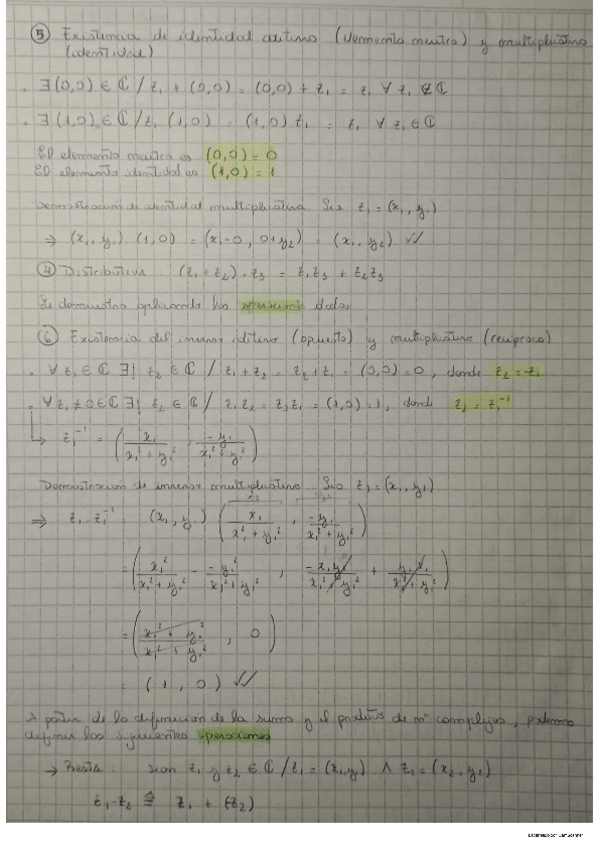 ⑤ Existencia de identidad aditivo (elemento neutro) y multiplicativo
(identidad)
. ∃ (0,0) ∈ ℂ / z₁ + (0,0) = (0,0) + z₁ = z₁ ∀ z₁ ∈ ℂ
. ∃ (1,0) ∈ ℂ / z₁ (1,0) = (1,0) z₁ = z₁ ∀ z₁ ∈ ℂ
El elemento neutro es (0,0) = 0
El elemento identidad es (1,0) = 1
Demostración de identidad multiplicativa Sea z₁ = (x₁, y₁)
⇒ (x₁, y₁) . (1,0) = (x₁ - 0, 0 + y₂) = (x₁, y₂) ✓✓
④ Distributiva : (z₁ + z₂) . z₃ = z₁z₃ + z₂z₃
Se demuestra aplicando las operaciones dadas
⑥ Existencia del inverso aditivo (opuesto) y multiplicativo (recíproco)
. ∀ z₁ ∈ ℂ ∃! z₂ ∈ ℂ / z₁ + z₂ = z₂ + z₁ = (0,0) = 0, donde z₂ = -z₁
. ∀ z₁ ≠ 0 ∈ ℂ ∃! z₂ ∈ ℂ / z₁z₂ = z₂z₁ = (1,0) = 1, donde z₂ = z₁⁻¹
↳ z₁⁻¹ = (x₁/(x₁² + y₁²) , -y₁/(x₁² + y₁²))
Demostración de inverso multiplicativo Sea z₁ = (x₁, y₁)
⇒ z₁ . z₁⁻¹ = (x₁, y₁) (x₁/(x₁² + y₁²) , -y₁/(x₁² + y₁²))
= (x₁²/(x₁² + y₁²) - -y₁²/(x₁² + y₁²) , -x₁y₁/(x₁² + y₁²) + y₁x₁/(x₁² + y₁²))
= ((x₁² + y₁²)/(x₁² + y₁²) , 0)
= (1, 0) ✓✓
A partir de la definición de la suma y el producto de nº complejos, podemos
definir las siguientes operaciones
→ Resta : Sean z₁ y z₂ ∈ ℂ / z₁ = (x₁, y₁) ∧ z₂ = (x₂, y₂)
z₁ - z₂ ≙ z₁ + (-z₂)